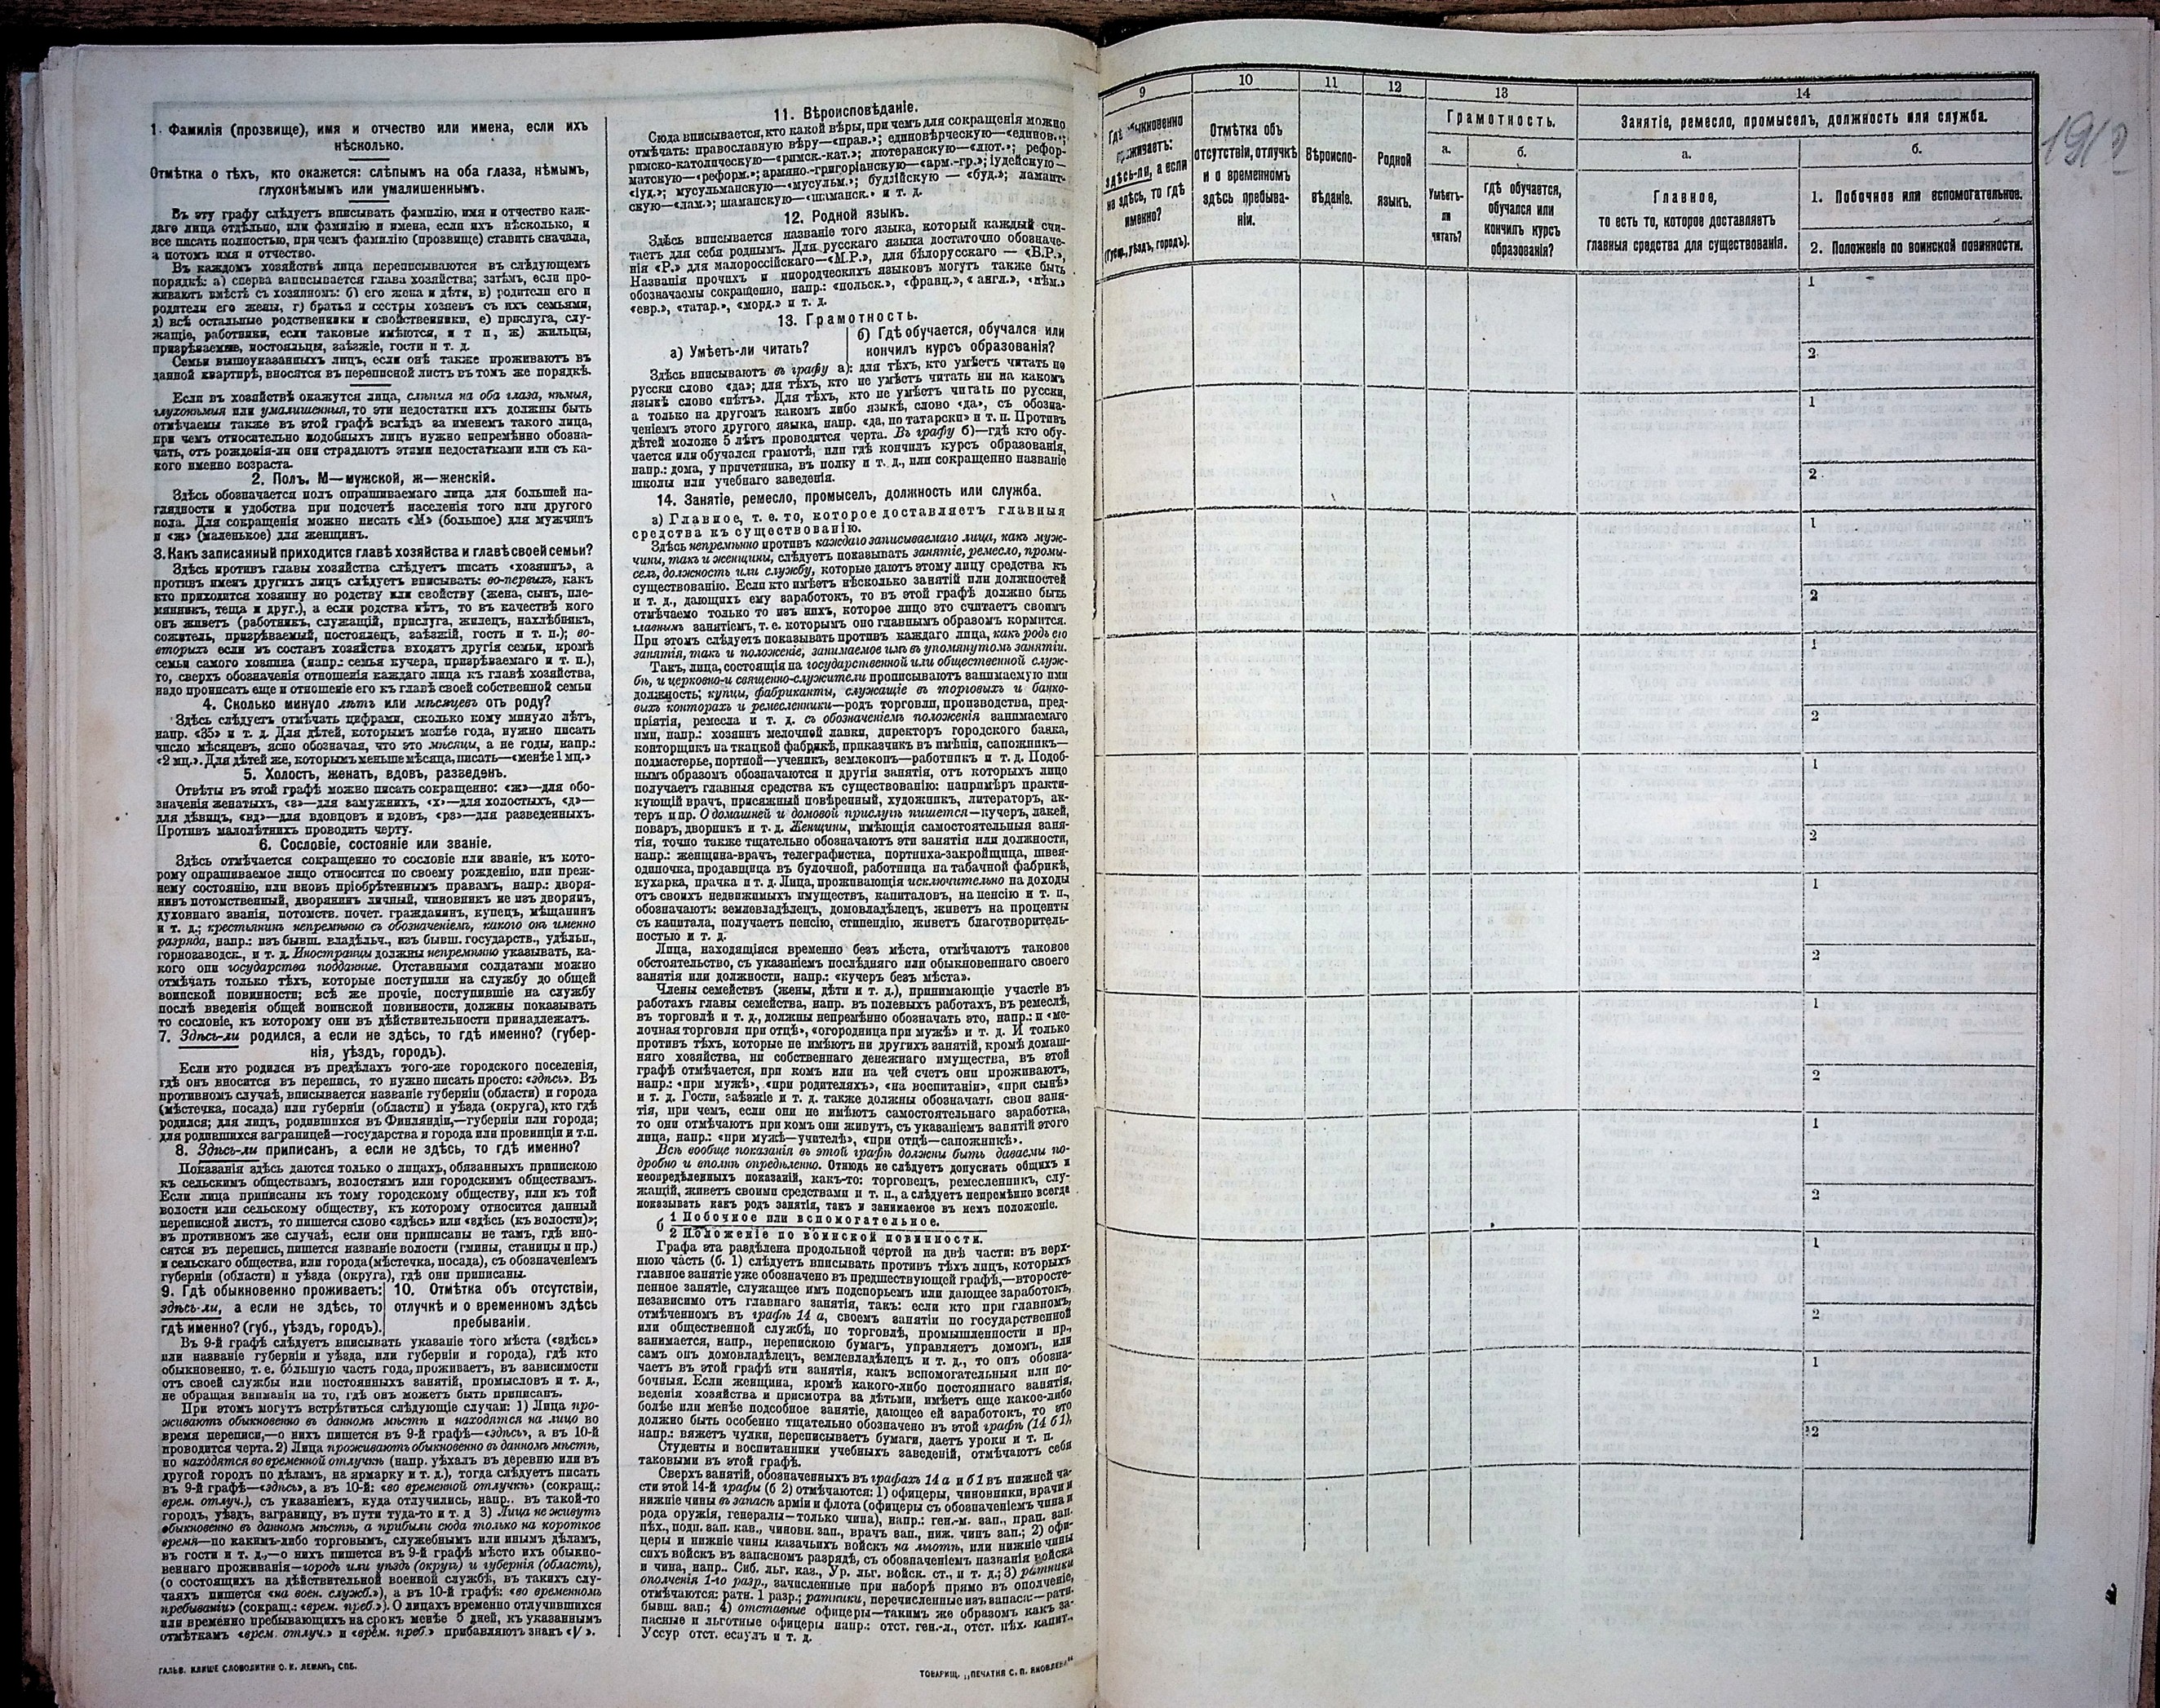 1. Фамилія (прозвище), имя и отчество или имена, если ихъ
нѣсколько.
Отмѣтка о тѣхъ, кто окажется: слѣпымъ на оба глаза, нѣмымъ,
глухонѣмымъ или умалишеннымъ.
Въ эту графу слѣдуетъ вписывать фамилію, имя и отчество каж-
даго лица отдѣльно, или фамилію и имена, если ихъ нѣсколько, и
все писать полностью, при чемъ фамилію (прозвище) ставить сначала,
а потомъ имя и отчество.
Въ каждомъ хозяйствѣ лица переписываются въ слѣдующемъ
порядкѣ: а) сперва записывается глава хозяйства; затѣмъ, если про-
живаютъ вмѣстѣ съ хозяиномъ: б) его жена и дѣти, в) родители его и
родители его жены, г) братья и сестры хозяевъ съ ихъ семьями,
д) всѣ остальные родственники и свойственники, е) прислуга, слу-
жащіе, работники, если таковые имѣются, и т п, ж) жильцы,
призрѣваемые, постояльцы, заѣзжіе, гости и т. д.
Семьи вышеуказанныхъ лицъ, если онѣ также проживаютъ въ
данной квартирѣ, вносятся въ переписной листъ въ томъ же порядкѣ.
Если въ хозяйствѣ окажутся лица, слѣпыя на оба глаза, нѣмыя,
глухонѣмыя или умалишенныя, то эти недостатки ихъ должны быть
отмѣчаемы также въ этой графѣ вслѣдъ за именемъ такого лица,
при чемъ относительно подобныхъ лицъ нужно непремѣнно обозна-
чать, отъ рожденія-ли они страдаютъ этими недостатками или съ ка-
кого именно возраста.
2. Полъ. М—мужской, ж—женскій.
Здѣсь обозначается полъ опрашиваемаго лица для большей на-
глядности и удобства при подсчетѣ населенія того или другого
пола. Для сокращенія можно писать «М» (большое) для мужчинъ
и «ж» (маленькое) для женщинъ.
3. Какъ записанный приходится главѣ хозяйства и главѣ своей семьи?
Здѣсь противъ главы хозяйства слѣдуетъ писать «хозяинъ», а
противъ именъ другихъ лицъ слѣдуетъ вписывать: во-первыхъ, какъ
кто приходится хозяину по родству или свойству (жена, сынъ, пле-
мянникъ, теща и друг.), а если родства нѣтъ, то въ качествѣ кого
онъ живетъ (работникъ, служащій, прислуга, жилецъ, нахлѣбникъ,
сожитель, призрѣваемый, постоялецъ, заѣзжій, гость и т. п.); во-
вторыхъ если въ составъ хозяйства входятъ другія семьи, кромѣ
семьи самого хозяина (напр.: семья кучера, призрѣваемаго и т. п.),
то, сверхъ обозначенія отношенія каждаго лица къ главѣ хозяйства,
надо прописать еще и отношеніе его къ главѣ своей собственной семьи
4. Сколько минуло лѣтъ или мѣсяцевъ отъ роду?
Здѣсь слѣдуетъ отмѣчать цифрами, сколько кому минуло лѣтъ,
напр. «35» и т. д. Для дѣтей, которымъ менѣе года, нужно писать
число мѣсяцевъ, ясно обозначая, что это мѣсяцы, а не годы, напр.:
«2 мц.». Для дѣтей же, которымъ меньше мѣсяца, писать—«менѣе 1 мц.»
5. Холостъ, женатъ, вдовъ, разведенъ.
Отвѣты въ этой графѣ можно писать сокращенно: «ж»—для обо-
значенія женатыхъ, «з»—для замужнихъ, «х»—для холостыхъ, «д»—
для дѣвицъ, «вд»—для вдовцовъ и вдовъ, «рз»—для разведенныхъ.
Противъ малолѣтнихъ проводить черту.
6. Сословіе, состояніе или званіе.
Здѣсь отмѣчается сокращенно то сословіе или званіе, къ кото-
рому опрашиваемое лицо относится по своему рожденію, или преж-
нему состоянію, или вновь пріобрѣтеннымъ правамъ, напр.: дворя-
нинъ потомственный, дворянинъ личный, чиновникъ не изъ дворянъ,
духовнаго званія, потомств. почет. гражданинъ, купецъ, мѣщанинъ
и т. д.; крестьянинъ непремѣнно съ обозначеніемъ, какого онъ именно
разряда, напр.: изъ бывш. владѣльч., изъ бывш. государств., удѣльн.,
горнозаводск., и т. д. Иностранцы должны непремѣнно указывать, ка-
кого они государства подданные. Отставными солдатами можно
отмѣчать только тѣхъ, которые поступили на службу до общей
воинской повинности; всѣ же прочіе, поступившіе на службу
послѣ введенія общей воинской повинности, должны показывать
то сословіе, къ которому они въ дѣйствительности принадлежатъ.
7. Здѣсь-ли родился, а если не здѣсь, то гдѣ именно? (губер-
нія, уѣздъ, городъ).
Если кто родился въ предѣлахъ того-же городского поселенія,
гдѣ онъ вносится въ перепись, то нужно писать просто: «здѣсь». Въ
противномъ случаѣ, вписывается названіе губерніи (области) и города
(мѣстечка, посада) или губерніи (области) и уѣзда (округа), кто гдѣ
родился; для лицъ, родившихся въ Финляндіи,—губерніи или города;
для родившихся заграницей—государства и города или провинціи и т.п.
8. Здѣсь-ли приписанъ, а если не здѣсь, то гдѣ именно?
Показанія здѣсь даются только о лицахъ, обязанныхъ припискою
къ сельскимъ обществамъ, волостямъ или городскимъ обществамъ.
Если лица приписаны къ тому городскому обществу, или къ той
волости или сельскому обществу, къ которому относится данный
переписной листъ, то пишется слово «здѣсь» или «здѣсь (къ волости)»;
въ противномъ же случаѣ, если они приписаны не тамъ, гдѣ вно-
сятся въ перепись, пишется названіе волости (гмины, станицы и пр.)
и сельскаго общества, или города (мѣстечка, посада), съ обозначеніемъ
губерніи (области) и уѣзда (округа), гдѣ они приписаны.
9. Гдѣ обыкновенно проживаетъ:
здѣсь-ли, а если не здѣсь, то
гдѣ именно? (губ., уѣздъ, городъ).
10. Отмѣтка объ отсутствіи,
отлучкѣ и о временномъ здѣсь
пребываніи.
Въ 9-й графѣ слѣдуетъ вписывать указаніе того мѣста («здѣсь»
или названіе губерніи и уѣзда, или губерніи и города), гдѣ кто
обыкновенно, т. е. бо́льшую часть года, проживаетъ, въ зависимости
отъ своей службы или постоянныхъ занятій, промысловъ и т. д.,
не обращая вниманія на то, гдѣ онъ можетъ быть приписанъ.
При этомъ могутъ встрѣтиться слѣдующіе случаи: 1) Лица про-
живаютъ обыкновенно въ данномъ мѣстѣ и находятся на лицо во
время переписи,—о нихъ пишется въ 9-й графѣ—«здѣсь», а въ 10-й
проводится черта. 2) Лица проживаютъ обыкновенно въ данномъ мѣстѣ,
но находятся во временной отлучкѣ (напр. уѣхалъ въ деревню или въ
другой городъ по дѣламъ, на ярмарку и т. д.), тогда слѣдуетъ писать
въ 9-й графѣ—«здѣсь», а въ 10-й: «во временной отлучкѣ» (сокращ.:
врем. отлуч.), съ указаніемъ, куда отлучились, напр.. въ такой-то
городъ, уѣздъ, заграницу, въ пути туда-то и т. д 3) Лица не живутъ
обыкновенно въ данномъ мѣстѣ, а прибыли сюда только на короткое
время—по какимъ-либо торговымъ, служебнымъ или инымъ дѣламъ,
въ гости и т. д.,—о нихъ пишется въ 9-й графѣ мѣсто ихъ обыкно-
веннаго проживанія—городъ или уѣздъ (округъ) и губернія (область),
(о состоящихъ на дѣйствительной военной службѣ, въ такихъ слу-
чаяхъ пишется «на воен. служб.»), а въ 10-й графѣ: «во временномъ
пребываніи» (сокращ.: «врем. преб.»). О лицахъ временно отлучившихся
или временно пребывающихъ на срокъ менѣе 5 дней, къ указаннымъ
отмѣткамъ «врем. отлуч.» и «врем. преб.» прибавляютъ знакъ «V».
ГАЛЬВ. КЛИШЕ СЛОВОЛИТНИ О. И. ЛЕМАНЪ, СПБ.
11. Вѣроисповѣданіе.
Сюда вписывается, кто какой вѣры, при чемъ для сокращенія можно
отмѣчать: православную вѣру—«прав.»; единовѣрческую—«единов.»;
римско-католическую—«римск.-кат.»; лютеранскую—«лют.»; рефор-
матскую—«реформ.»; армяно-григоріанскую—«арм.-гр.»; іудейскую—
«іуд.»; мусульманскую—«мусульм.»; буддійскую — «буд.»; ламаит-
скую—«лам.»; шаманскую—«шаманск.» и т. д.
12. Родной языкъ.
Здѣсь вписывается названіе того языка, который каждый счи-
таетъ для себя роднымъ. Для русскаго языка достаточно обозначе-
нія «Р.» для малороссійскаго—«М.Р.», для бѣлорусскаго — «Б.Р.»,
Названія прочихъ и инородческихъ языковъ могутъ также быть
обозначаемы сокращенно, напр.: «польск.», «франц.», « англ.», «нѣм.»
«евр.», «татар.», «морд.» и т. д.
13. Грамотность.
а) Умѣетъ-ли читать?
б) Гдѣ обучается, обучался или
кончилъ курсъ образованія?
Здѣсь вписываютъ въ графу а): для тѣхъ, кто умѣетъ читать по
русски слово «да»; для тѣхъ, кто не умѣетъ читать ни на какомъ
языкѣ слово «нѣтъ». Для тѣхъ, кто не умѣетъ читать по русски,
а только на другомъ какомъ либо языкѣ, слово «да», съ обозна-
ченіемъ этого другого языка, напр. «да, по татарски» и т. п. Противъ
дѣтей моложе 5 лѣтъ проводится черта. Въ графу б)—гдѣ кто обу-
чается или обучался грамотѣ, или гдѣ кончилъ курсъ образованія,
напр.: дома, у причетника, въ полку и т. д., или сокращенно названіе
школы или учебнаго заведенія.
14. Занятіе, ремесло, промыселъ, должность или служба.
а) Главное, т. е. то, которое доставляетъ главныя
средства къ существованію.
Здѣсь непремѣнно противъ каждаго записываемаго лица, какъ муж-
чины, такъ и женщины, слѣдуетъ показывать занятіе, ремесло, промы-
селъ, должность или службу, которые даютъ этому лицу средства къ
существованію. Если кто имѣетъ нѣсколько занятій или должностей
и т. д., дающихъ ему заработокъ, то въ этой графѣ должно быть
отмѣчаемо только то изъ нихъ, которое лицо это считаетъ своимъ
главнымъ занятіемъ, т. е. которымъ оно главнымъ образомъ кормится.
При этомъ слѣдуетъ показывать противъ каждаго лица, какъ родъ его
занятія, такъ и положеніе, занимаемое имъ въ упомянутомъ занятіи.
Такъ, лица, состоящія на государственной или общественной служ-
бѣ, и церковно-и священно-служители прописываютъ занимаемую ими
должность; купцы, фабриканты, служащіе въ торговыхъ и банко-
выхъ конторахъ и ремесленники—родъ торговли, производства, пред-
пріятія, ремесла и т. д. съ обозначеніемъ положенія занимаемаго
ими, напр.: хозяинъ мелочной лавки, директоръ городского банка,
конторщикъ на ткацкой фабрикѣ, приказчикъ въ имѣніи, сапожникъ—
подмастерье, портной—ученикъ, землекопъ—работникъ и т. д. Подоб-
нымъ образомъ обозначаются и другія занятія, отъ которыхъ лицо
получаетъ главныя средства къ существованію: напримѣръ практи-
кующій врачъ, присяжный повѣренный, художникъ, литераторъ, ак-
теръ и пр. О домашней и домовой прислугѣ пишется—кучеръ, лакей,
поваръ, дворникъ и т. д. Женщины, имѣющія самостоятельныя заня-
тія, точно также тщательно обозначаютъ эти занятія или должности,
напр.: женщина-врачъ, телеграфистка, портниха-закройщица, швея-
одиночка, продавщица въ булочной, работница на табачной фабрикѣ,
кухарка, прачка и т. д. Лица, проживающія исключительно на доходы
отъ своихъ недвижимыхъ имуществъ, капиталовъ, на пенсію и т. п.,
обозначаютъ: землевладѣлецъ, домовладѣлецъ, живетъ на проценты
съ капитала, получаетъ пенсію, стипендію, живетъ благотворитель-
ностью и т. д.
Лица, находящіяся временно безъ мѣста, отмѣчаютъ таковое
обстоятельство, съ указаніемъ послѣдняго или обыкновеннаго своего
занятія или должности, напр.: «кучеръ безъ мѣста».
Члены семействъ (жены, дѣти и т. д.), принимающіе участіе въ
работахъ главы семейства, напр. въ полевыхъ работахъ, въ ремеслѣ,
въ торговлѣ и т. д., должны непремѣнно обозначать это, напр.: и «ме-
лочная торговля при отцѣ», «огородница при мужѣ» и т. д. И только
противъ тѣхъ, которые не имѣютъ ни другихъ занятій, кромѣ домаш-
няго хозяйства, ни собственнаго денежнаго имущества, въ этой
графѣ отмѣчается, при комъ или на чей счетъ они проживаютъ,
напр.: «при мужѣ», «при родителяхъ», «на воспитаніи», «при сынѣ»
и т. д. Гости, заѣзжіе и т. д. также должны обозначать свои заня-
тія, при чемъ, если они не имѣютъ самостоятельнаго заработка,
то они отмѣчаютъ при комъ они живутъ, съ указаніемъ занятій этого
лица, напр.: «при мужѣ—учителѣ», «при отцѣ—сапожникѣ».
Всѣ вообще показанія въ этой графѣ должны быть даваемы по-
дробно и вполнѣ опредѣленно. Отнюдь не слѣдуетъ допускать общихъ и
неопредѣленныхъ показаній, какъ-то: торговецъ, ремесленникъ, слу-
жащій, живетъ своими средствами и т. п., а слѣдуетъ непремѣнно всегда
показывать какъ родъ занятія, такъ и занимаемое въ немъ положеніе.
б 1 Побочное или вспомогательное.
2 Положеніе по воинской повинности.
Графа эта раздѣлена продольной чертой на двѣ части: въ верх-
нюю часть (б. 1) слѣдуетъ вписывать противъ тѣхъ лицъ, которыхъ
главное занятіе уже обозначено въ предшествующей графѣ,—второсте-
пенное занятіе, служащее имъ подспорьемъ или дающее заработокъ,
независимо отъ главнаго занятія, такъ: если кто при главномъ,
отмѣченномъ въ графѣ 14 а, своемъ занятіи по государственной
или общественной службѣ, по торговлѣ, промышленности и пр.,
занимается, напр., перепискою бумагъ, управляетъ домомъ, или
самъ онъ домовладѣлецъ, землевладѣлецъ и т. д., то онъ обозна-
чаетъ въ этой графѣ эти занятія, какъ вспомогательныя или по-
бочныя. Если женщина, кромѣ какого-либо постояннаго занятія,
веденія хозяйства и присмотра за дѣтьми, имѣетъ еще какое-либо
болѣе или менѣе подсобное занятіе, дающее ей заработокъ, то это
должно быть особенно тщательно обозначено въ этой графѣ (14 б 1),
напр.: вяжетъ чулки, переписываетъ бумаги, даетъ уроки и т. п.
Студенты и воспитанники учебныхъ заведеній, отмѣчаютъ себя
таковыми въ этой графѣ.
Сверхъ занятій, обозначенныхъ въ графахъ 14 а и б 1 въ нижней ча-
сти этой 14-й графы (б 2) отмѣчаются: 1) офицеры, чиновники, врачи и
нижніе чины въ запасѣ арміи и флота (офицеры съ обозначеніемъ чина и
рода оружія, генералы—только чина), напр.: ген.-м. зап., прап. зап.
пѣх., подп. зап. кав., чиновн. зап., врачъ зап., ниж. чинъ зап.; 2) офи-
церы и нижніе чины казачьихъ войскъ на льготѣ, или нижніе чины
сихъ войскъ въ запасномъ разрядѣ, съ обозначеніемъ названія войска
и чина, напр.. Сиб. льг. каз., Ур. льг. войск. ст., и т. д.; 3) ратники
ополченія 1-го разр., зачисленные при наборѣ прямо въ ополченіе,
отмѣчаются: ратн. 1 разр.; ратники, перечисленные изъ запаса:—ратн.
бывш. зап.; 4) отставные офицеры—такимъ же образомъ какъ за-
пасные и льготные офицеры напр.: отст. ген.-л., отст. пѣх. капит.,
Уссур отст. есаулъ и т. д.
ТОВАРИЩ. „ПЕЧАТНЯ С. П. ЯКОВЛЕВА“
9
10
11
12
13
14
Гдѣ обыкновенно
проживаетъ:
здѣсь-ли, а если
не здѣсь, то гдѣ
именно?
(Губ., уѣздъ, городъ).
Отмѣтка объ
отсутствіи, отлучкѣ
и о временномъ
здѣсь пребыва-
ніи.
Вѣроиспо-
вѣданіе.
Родной
языкъ.
Грамотность.
а.
Умѣетъ-
ли
читать?
б.
гдѣ обучается,
обучался или
кончилъ курсъ
образованія?
Занятіе, ремесло, промыселъ, должность или служба.
а.
Главное,
то есть то, которое доставляетъ
главныя средства для существованія.
б.
1. Побочное или вспомогательное.
2. Положеніе по воинской повинности.
1
2
1
2
1
2
1
2
1
2
1
2
1
2
1
2
1
2
1
2